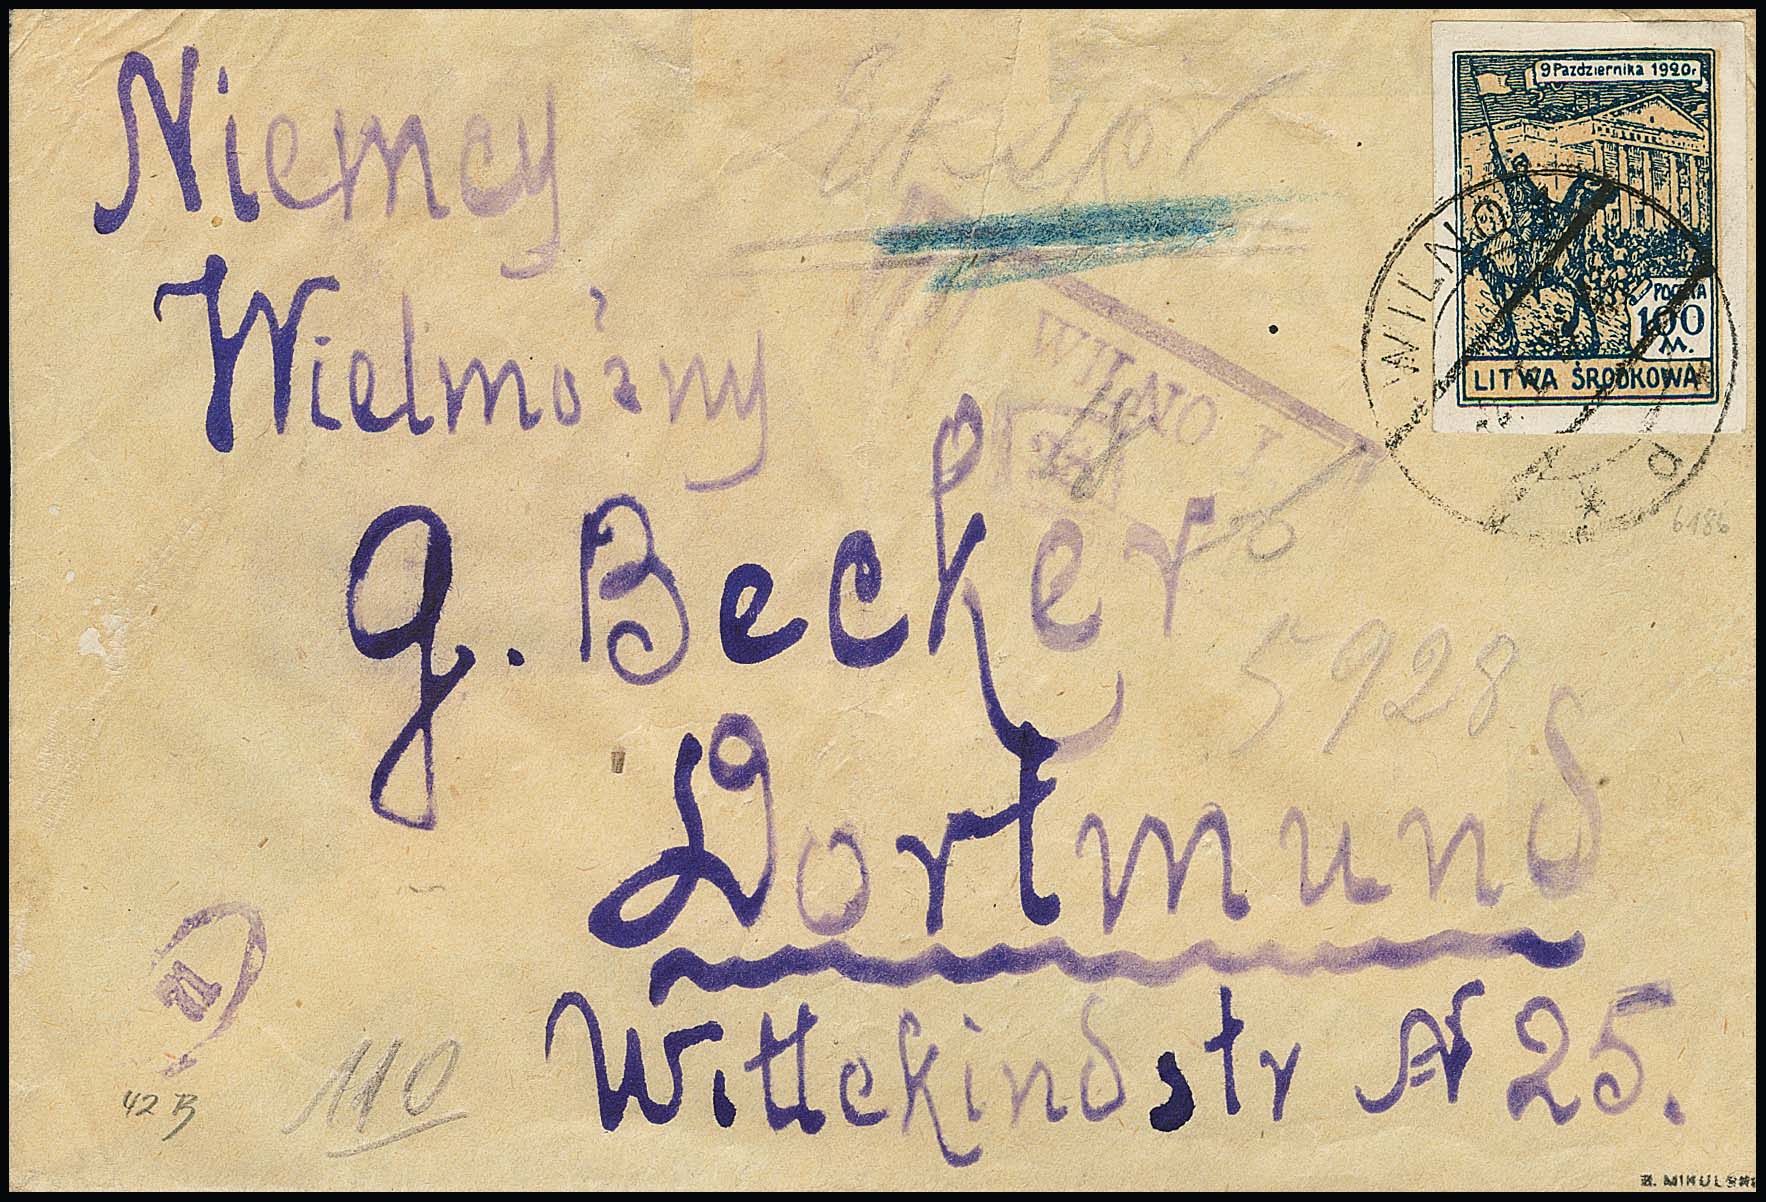 Niemcy
Wielmożny
G. Becker
Dortmund
Wittekindstr № 25.
9 Pazdziernika 1920 r.
POCZTA
100
M.
LITWA ŚRODKOWA
WILNO
WILNO 1
5928
6186
110
42 B